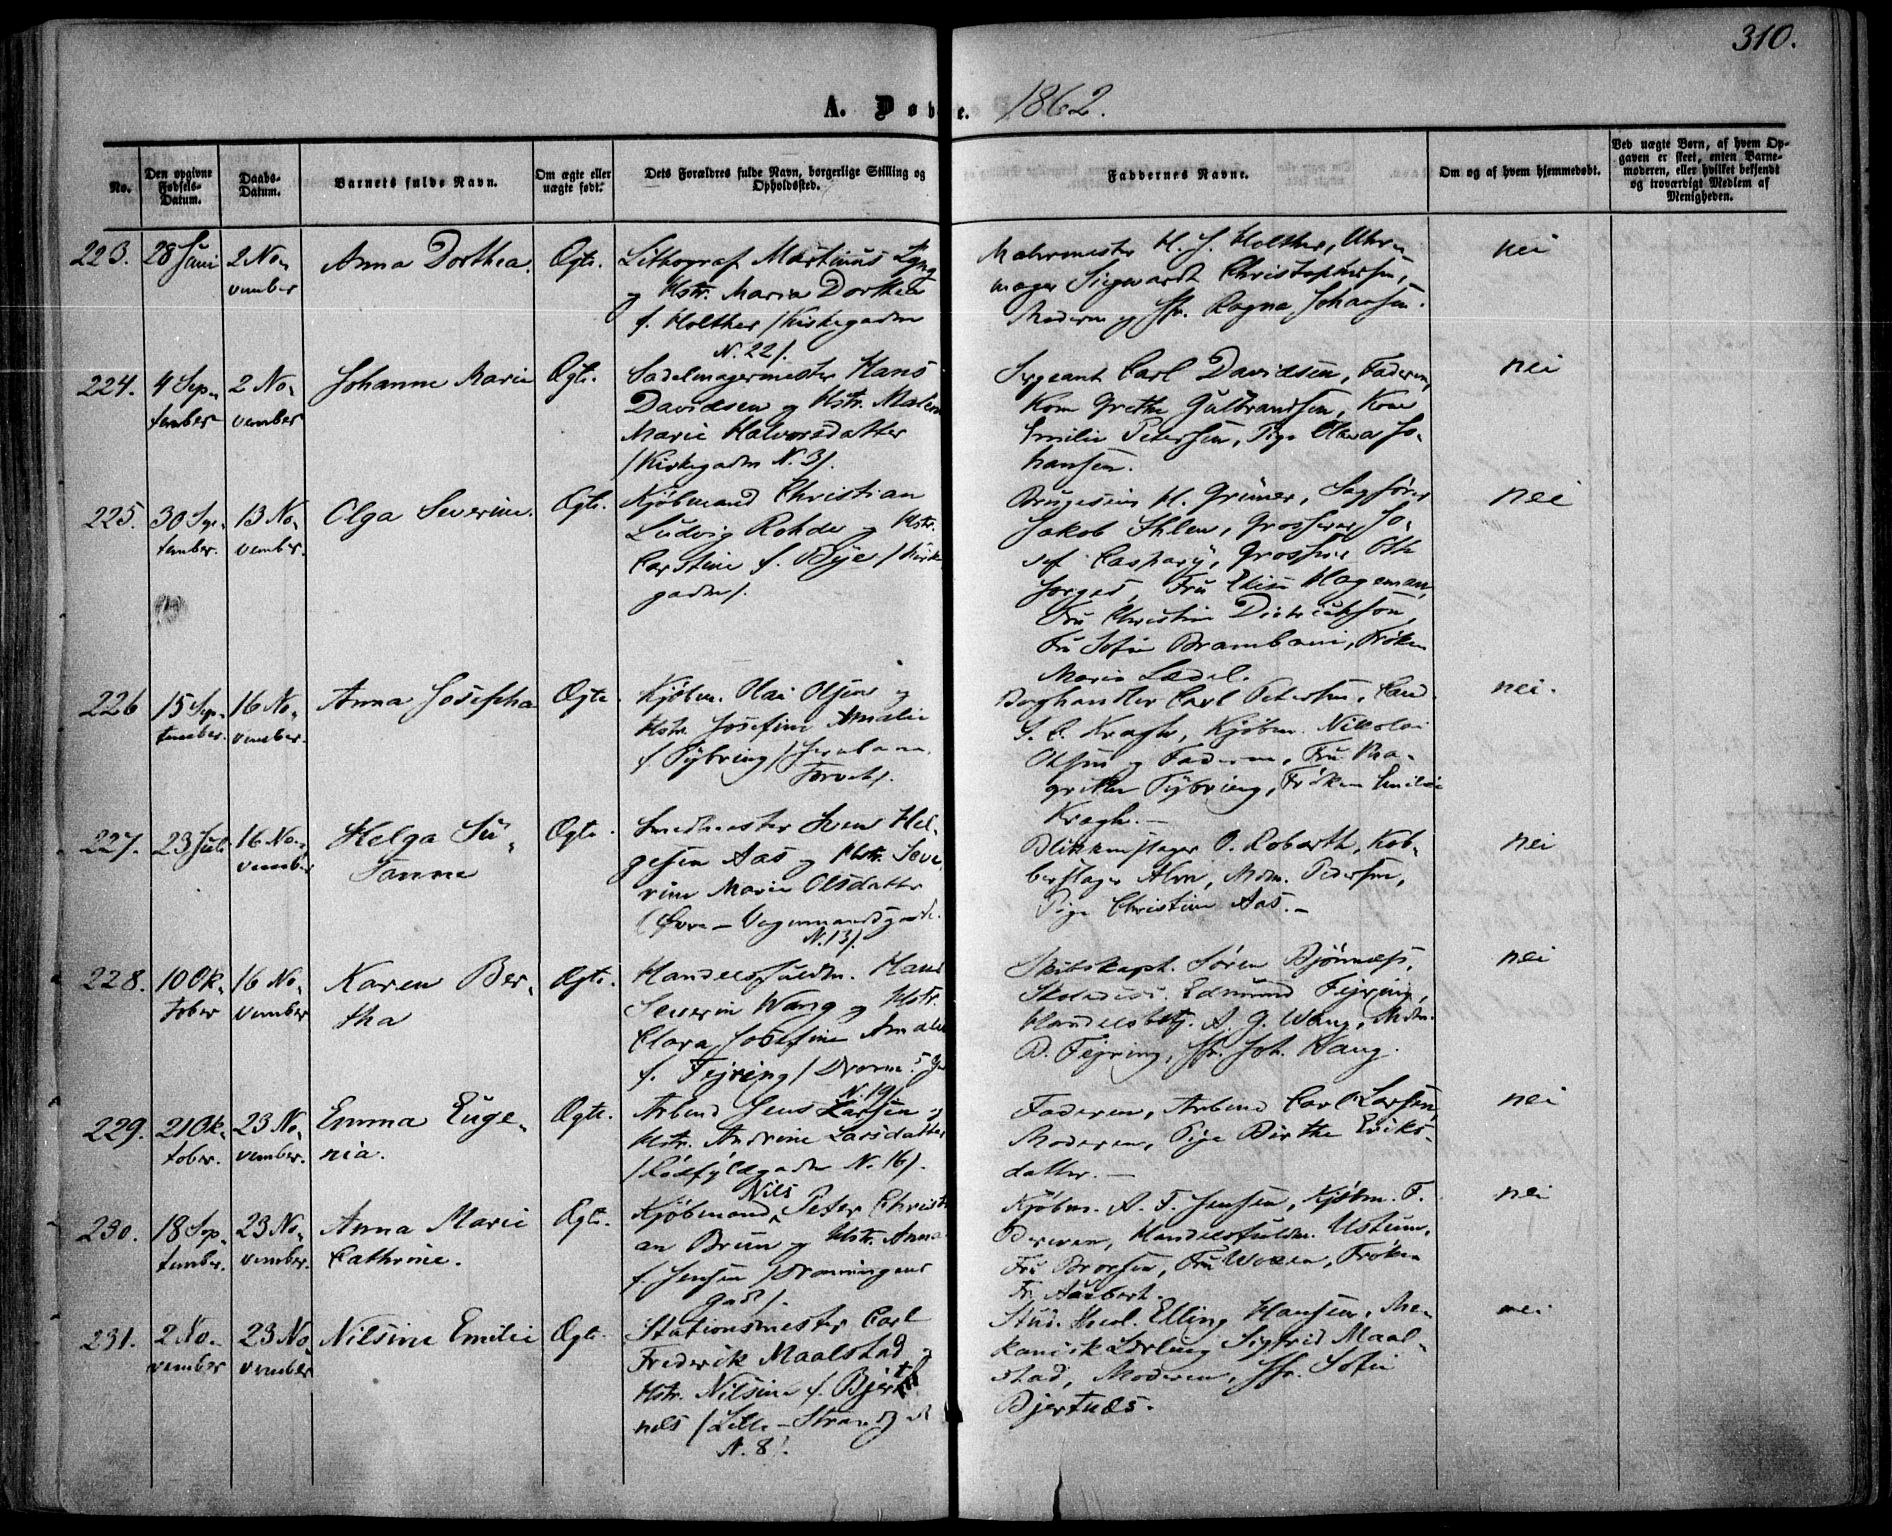 310.
A. Døbte. 1862.
No.
Den opgivne Fødsels-Datum.
Daabs-Datum.
Barnets fulde Navn.
Om ægte eller uægte født.
Dets Forældres fulde Navn, borgerlige Stilling og Opholdssted.
Faddernes Navne.
Om og af hvem hjemmedøbt.
Ved uægte Børn, af hvem Opgaven er skeet, enten Barnemoderen, eller hvilket bekjendt og troværdigt Medlem af Menigheden.
223. 28 Juni 2 No-
vember
Anna Dorthea.
Ægte.
Lithograf Martinus Lyng
og Hstr. Maria Dorthea
f. Holther /Kirkegaden
N. 22/.
Malermester H. J. Holther, Uhr-
mager Siegwardt Christophersen,
Moderen og Jfr. Ragna Johansen.
nei
224. 4 Sep- 2 No-
tember vember
Johanne Marie
Ægte.
Sadelmagermester Hans
Davidsen og Hstr. Maren
Marie Halvorsdatter
/Kirkegaden N. 3/.
Sergeant Carl Davidsen, Faderen,
Kone Grethe Gulbrandsen, Kone
Emilie Petersen, Pige Olava Jo-
hansen.
nei
225. 30 Sep- 13 No-
tember. vember.
Olga Severine.
Ægte.
Kjøbmand Christian
Ludvig Rohde og Hstr.
Carstine f. Bye /Kirke-
gaden/.
H. Grüner, Sagfører
Jakob Ihlen, Grosserer Jo-
sef Caspary, Grosserer Otto
Fru Elise Hageman,
Fru Christine Dietrichson,
Fru Sofie Frøken
Marie
nei
226 15 Sep- 16 No-
tember. vember.
Anna Josepha
Ægte.
Kjøbm. Olai Olsen og
Hstr. Josefine Amalie
f Tybring /Jernbane
Torvet/.
Boghandler Carl Petersen, Cand.
S. C. Kragh, Kjøbm. Nikolai
Olsen og Faderen, Fru Ma-
grethe Tybring, Frøken Emilie
Kragh.
nei.
227. 23 Juli 16 No-
vember
Helga Su-
sanne
Ægte.
Smedmester Sven Hel-
gesen Aas og Hstr. Seve-
rine Marie Olsdatter
(Øvre-Vognmandsgade.
N. 13/.
Blikkenslager O. Robarth, Kob-
berslager Alm, Mdm. Pedersen,
Pige Christine Aas.
nei
228. 10 Ok- 16 No-
tober vember
Karen Ber-
tha
Ægte.
Handelsfuldm. Hans
Severin Wang og Hstr.
Clara Josefine Amalie
f. Fejring /Dronn:s G
N. 19/
Skibskapt. Søren Bjønness,
Edmund Fejring,
Handelsbetj. A. G. Wang, Mdm.
D. Fejring, Jfr. Joh. Wang.
nei
229. 21 Ok- 23 No-
tober. vember.
Emma Euge-
nia.
Ægte.
Arbmd Jens Larsen og
Hstr. Andrine Larsdatter
/Rødfyldgaden N. 16/.
Faderen, Arbmd Carl Larsen,
Moderen, Pige Birthe Eriks-
datter.
nei
230. 18 Sep- 23 No-
tember. vember.
Anna Marie
Cathrine.
Ægte.
Nils
Kjøbmand Peter Christi
an Brun og Hstr. Anna
f. Jensen /Dronningens
gade/.
Kjøbm. A. F. Jensen, Kjøbm. F.
Handelsfuldm. Ustum,
Fru Brorsen, Fru Woxen, Frøken
Fr. Aubert.
nei
231. 2 No- 23 No-
vember vember
Nilsine Emilie
Ægte.
Stationsmester Carl
Frederik Maalstad og
Hstr. Nilsine f. Bjert-
næs /Lille-Strandg
N. 8/.
Stud. theol. Elling Hansen, Me-
kanisk Lærling Sigfrid Maal-
stad, Moderen, Jfr. Sofie
Bjertnæs.
nei